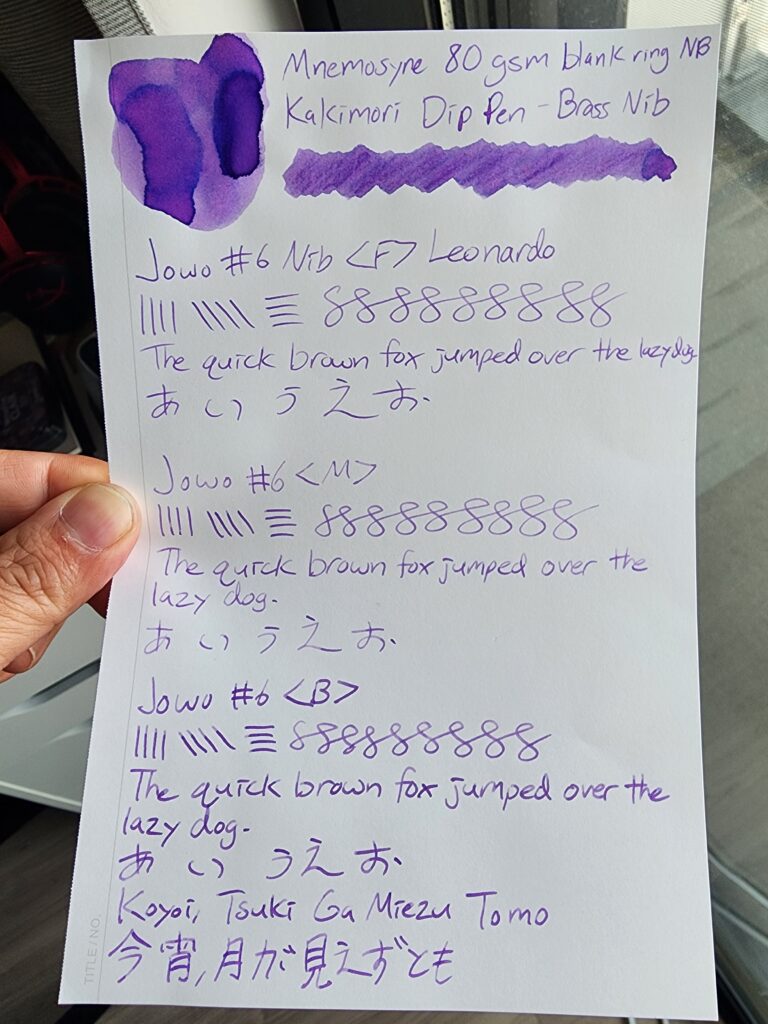 Mnemosyne 80 gsm blank ring NB
Kakimori Dip Pen - Brass Nib
Jowo #6 Nib <F> Leonardo
The quick brown fox jumped over the lazy dog.
あ い う え お
Jowo #6 <M>
The quick brown fox jumped over the
lazy dog.
あ い う え お
Jowo #6 <B>
The quick brown fox jumped over the
lazy dog.
あ い う え お
Koyoi, Tsuki Ga Miezu Tomo
今宵, 月が見えずとも
TITLE / NO.